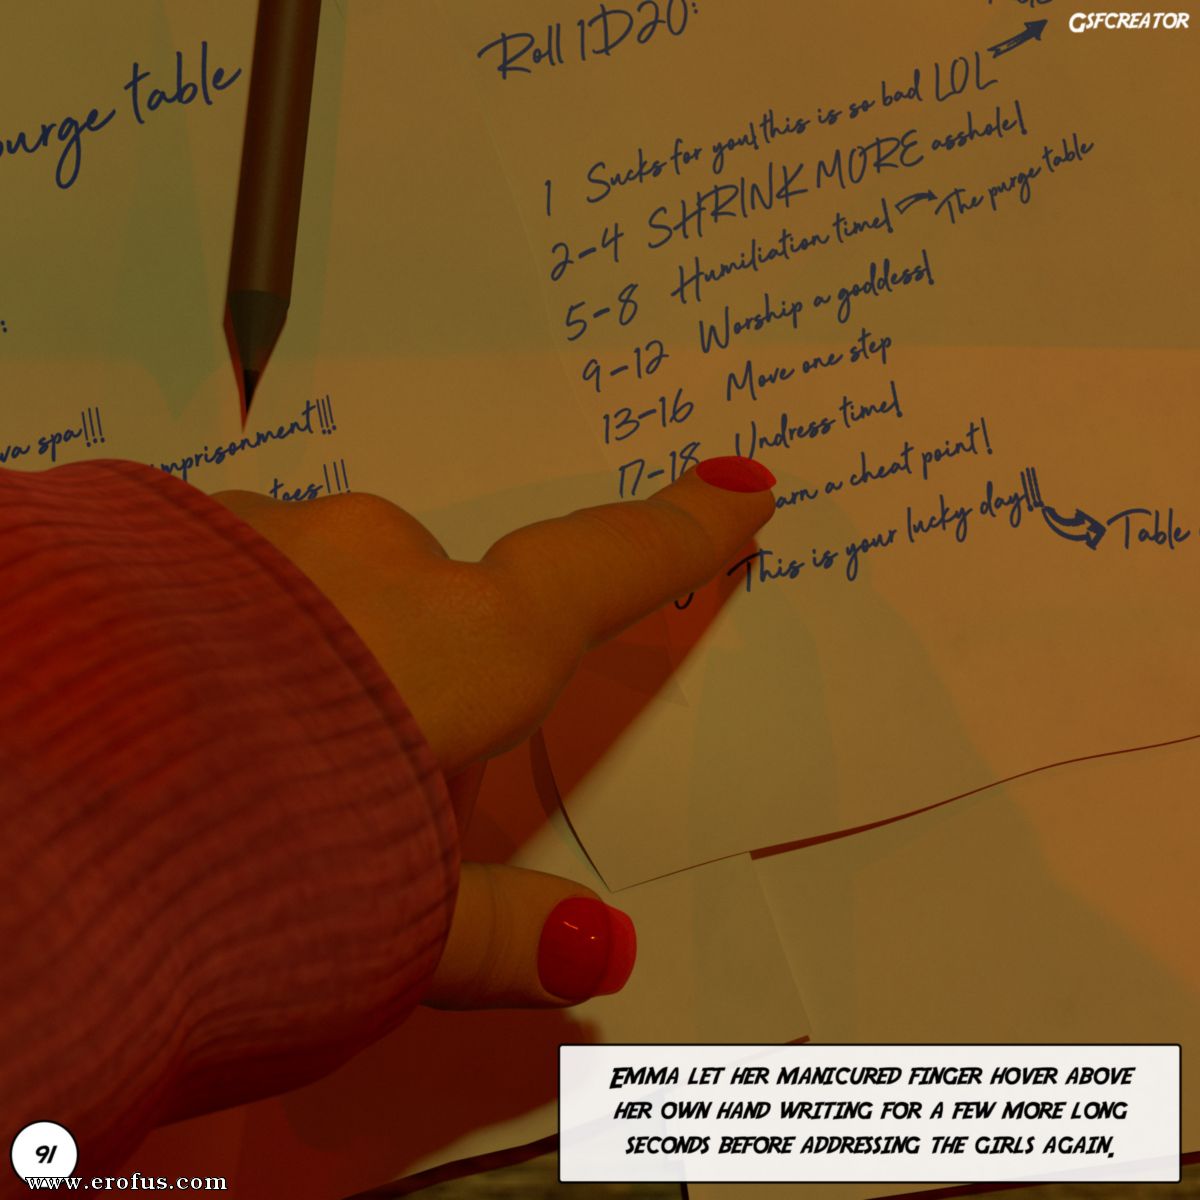 GSFCREATOR
Roll 1D20:
purge table
1 Sucks for you! this is so bad LOL
2-4 SHRINK MORE asshole!
5-8 Humiliation time! The purge table
9-12 Worship a goddess!
13-16 Move one step
17-18 Undress time!
arn a cheat point!
This is your lucky day!!! Table
va spa!!!
imprisonment!!!
toes!!!
EMMA LET HER MANICURED FINGER HOVER ABOVE
HER OWN HAND WRITING FOR A FEW MORE LONG
SECONDS BEFORE ADDRESSING THE GIRLS AGAIN.
91
www.erofus.com